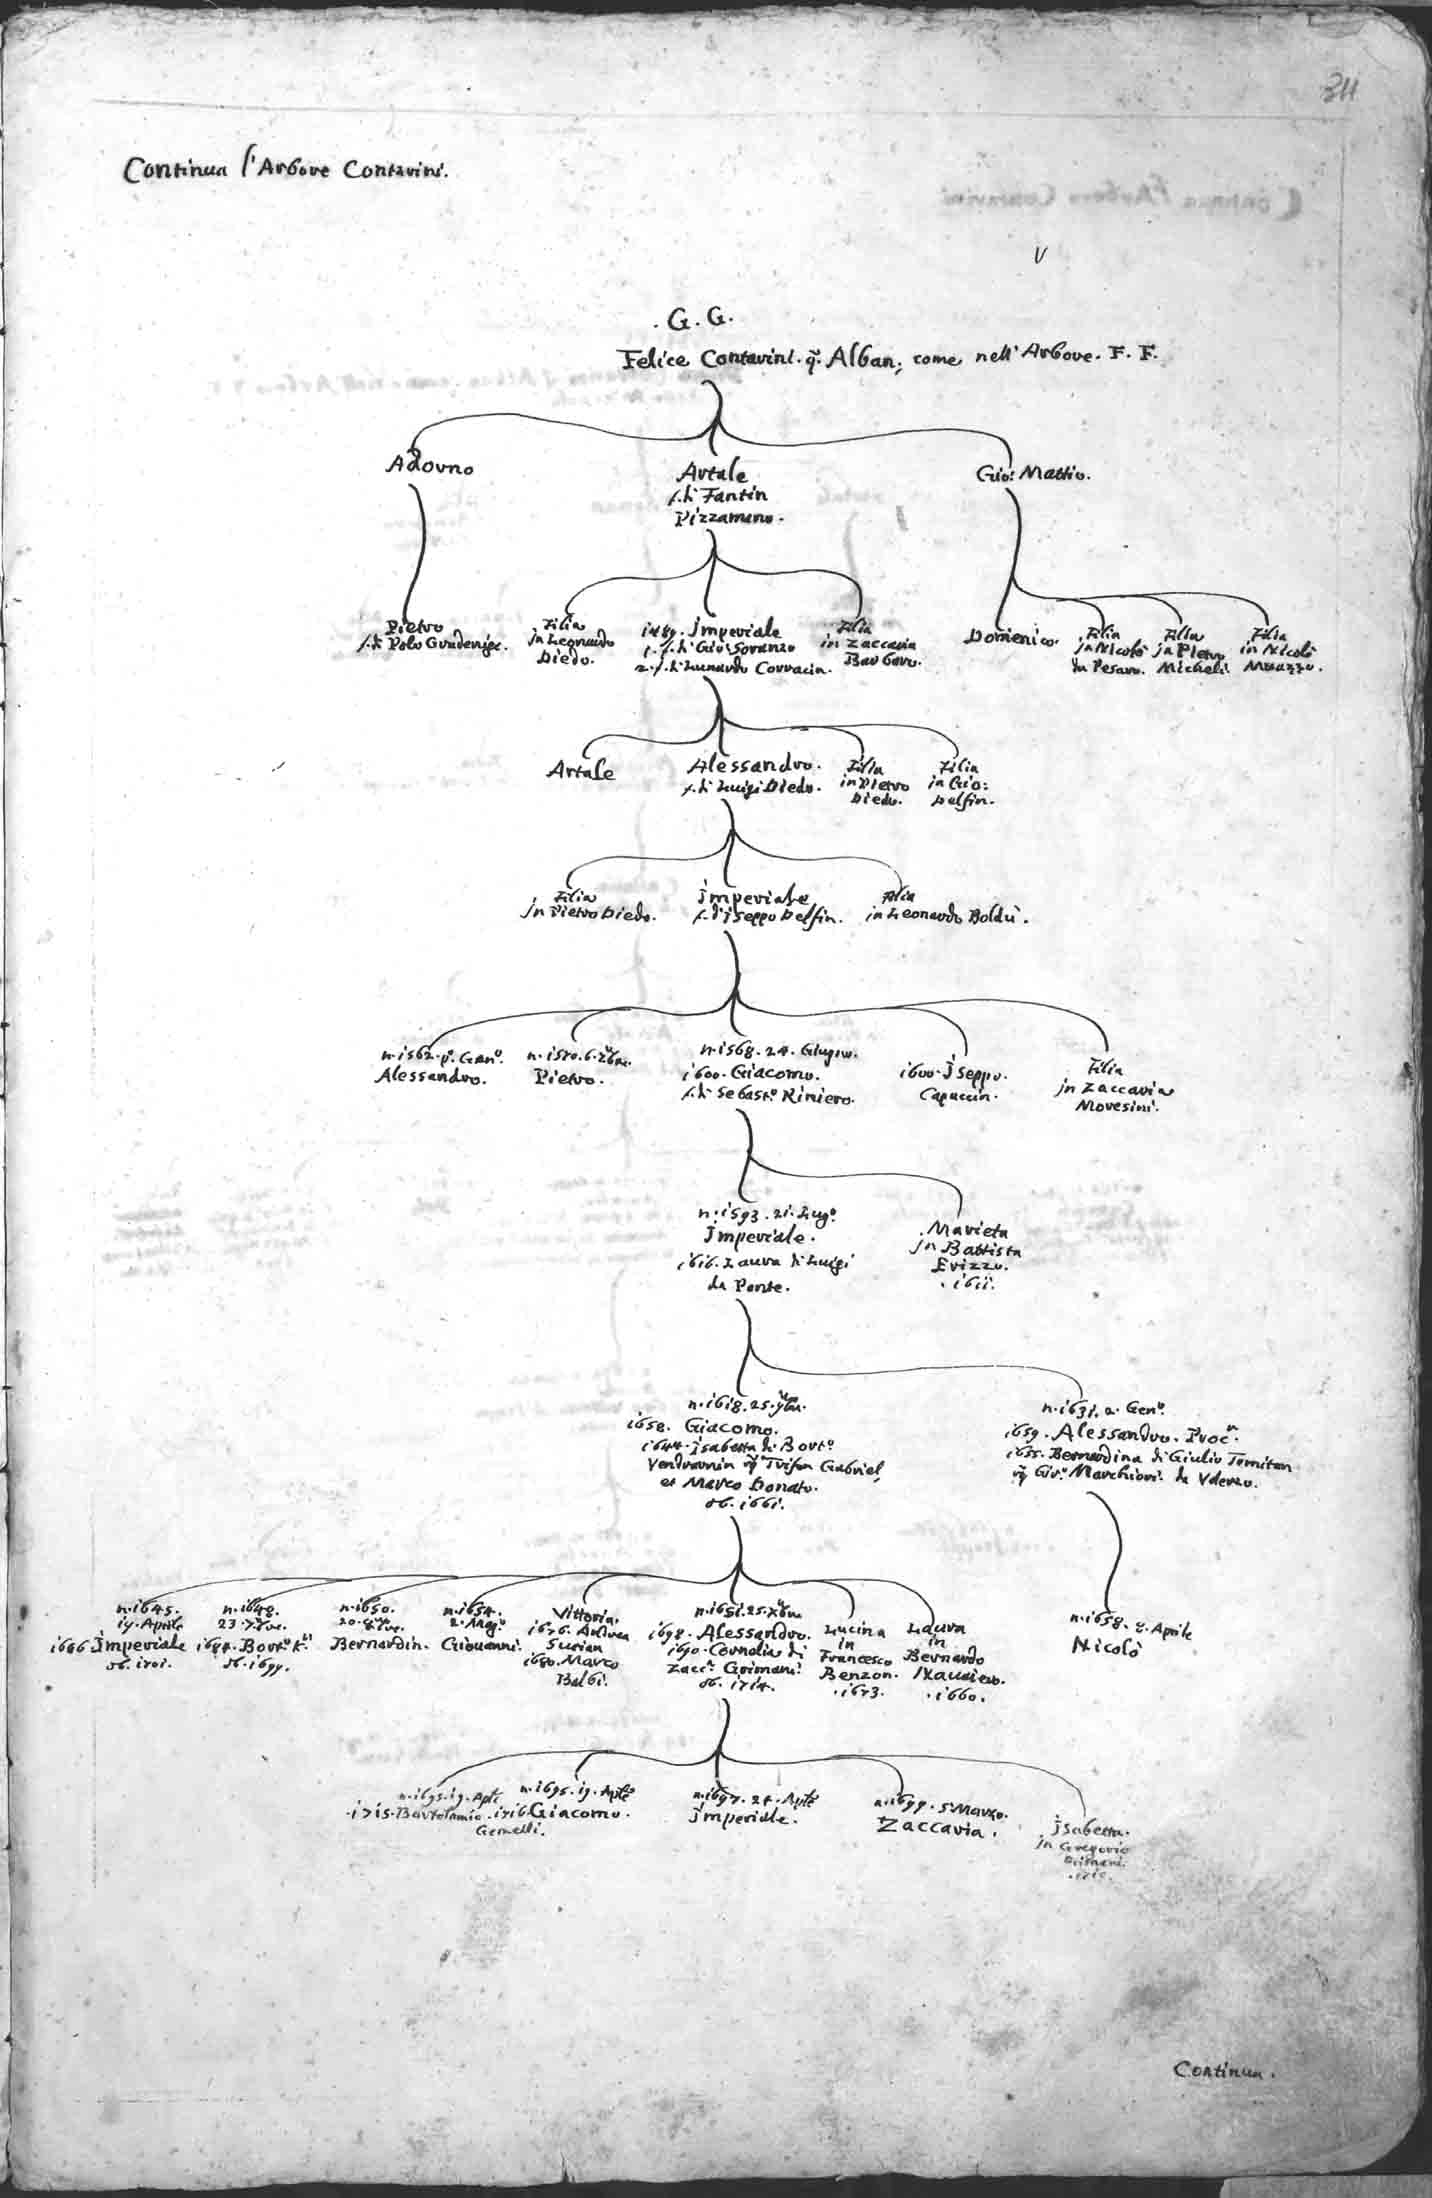 311
Continua l'Arbore Contarini.
V
.G.G.
Felice Contarini. q. Alban, come nell'Arbore. F. F.
Adorno
Artale
f. di Fantin
Pizzamano.
Gio: Mattio.
Pietro
f. di Polo Gradenigo.
Filia
jn Leonardo
Diedo.
1489. jmperiale
1. f. di Gio: Soranzo
2. f. di Lunardo Corracin.
Filia
in Zaccaria
Barbaro.
Domenico.
Filia
jn Nicolò
da Pesaro.
Filia
jn Pietro
Micheli.
Filia
in Nicolò
Muazzo.
Artale
Alessandro.
f. di Luigi Diedo.
Filia
in Pietro
Diedo.
Filia
in Gio:
Delfin.
Filia
jn Pietro Diedo.
jmperiale
f. di jseppo Delfin.
Filia
in Leonardo Boldù.
n. 1562. po. Geno.
Alessandro.
n. 1570. 6.
Pietro.
n. 1568. 24. Giugno.
1600. Giacomo.
f. di Sebasto. Riniero.
1600. jseppo.
Capuccin.
Filia
jn Zaccaria
Moresini.
n. 1593. 21. Lugo.
jmperiale.
1616. Laura di Luigi
da Ponte.
. Marieta
jn Battista
Erizzo.
. 1611.
n. 1618. 25.
1658. Giacomo.
1644. jsabetta di Borto.
Vendramin Trifon Gabriel,
et Marco Donato.
ob. 1661.
n. 1631. 2. Geno.
1659. Alessandro. Procr.
1655. Bernardina di Giulio Tomitan
Gio. Marchiori da Vderzo.
n. 1645.
19. Aprile
1666 jmperiale
ob. 1701.
n. 1648.
23. 7bre.
1684. Borto. Kr.
ob. 1699.
n. 1650.
20.
Bernardin.
n. 1654.
2. Mago.
Giouanni.
Vittoria.
1676. Andrea
Surian
1680. Marco
Balbi.
n. 1651. 25. Xbre
1698. Alessandro.
1690. Cornelia di
Zacca. Grimani.
ob. 1714.
Lucina
in
Francesco
Benzon.
. 1673.
Laura
in
Bernardo
Nauaiero.
. 1660.
n. 1658. 8. Aprile
Nicolò
n. 1695. 19. Aple
. 1715. Bartolamio.
n. 1695. 19. Aple
1716 Giacomo.
Gemelli.
n. 1697. 24. Aple
jmperiale.
n. 1699. 5. Marzo.
Zaccaria.
jsabetta.
jn Gregorio
Continua.